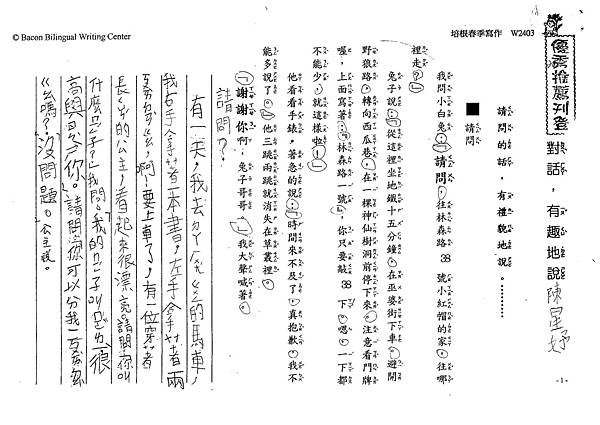 © Bacon Bilingual Writing Center
培根春季寫作 W2403
優秀推薦刊登
對話，有趣地說 陳星妤
請問的話，有禮貌地說。………
-1-
■ 請問
我問小白兔：「請問，往林森路 38 號小紅帽的家，往哪
裡走？」
兔子說：「從這裡坐地鐵十五分鐘。在巫婆街下車。避開
野狼路，轉向西瓜巷。在一棵神仙樹洞前停下來。注意看門牌
喔，上面寫著：『林森路一號』，你只要敲 38 下。嗯。一下都
不能少，就這樣啦！」
他看看手錶，著急的說：「時間來不及了。真抱歉。我不
能多說了。」他三跳兩跳就消失在草叢裡。
「謝謝你啊，兔子哥哥。」我大聲喊著。
請問？
有一天，我去ㄅㄢㄍㄜ的馬車，
我右手拿著一本書，左手拿著兩
啊！要上車了，有一位穿著
的公主，看起來很漂亮。請問你叫
什麼名子？我問。我的名子叫
很
高興
你。請問你可以分我一
嗎？沒問題。公主說。